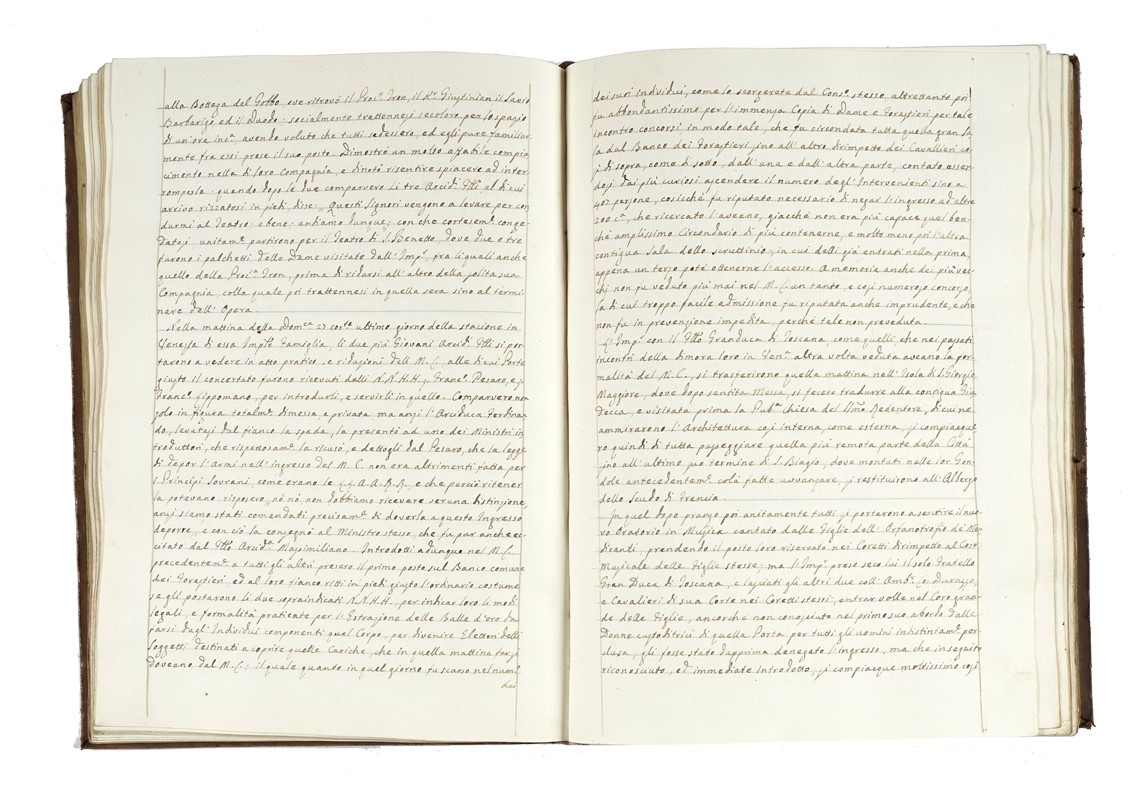 alla Bottega del Gobbo ove ritrovò il Proc.r Tron, il K.r Giustinian il Savio
Barbarigo ed il Duodo: socialmente trattennesi secoloro per lo spazio
di un ore inc.a, avendo voluto che tutti sedessero, ed egli pure familiar-
mente fra essi prese il suo posto. Dimostrò un molto affabile compia-
cimento nella di loro Compagnia, e dinotò risentire spiacere ad inter-
romperla: quando dopo le due comparvero li tre Arcid.i Fflli al di cui
arrivo rizzatosi in piedi, disse,, Questi Signori vengono a levare per con-
durmi al Teatro: ebene; andiamo dunque; con che cortesem.te conge-
datosi unitam.te partirono per il Teatro di S. Benetto, dove due o tre
furono i palchetti delle Dame visitato dall' Imp.r, fra li quali anche
quello della Proc.a Tron, prima di ridursi all' altro della polita sua
Compagnia, colla quale poi trattennesi in quella sera sino al termi-
nare dell' Opera.
Nella mattina della Dom.ca 23 corr.te ultimo giorno della stazione in
Venezia di essa Imp.le Famiglia, li due più Giovani Arcid.i Fflli si por-
tarono a vedere in atto pratico, e riduzioni dell M.C., alle di cui Porte
giusto il concertato furono ricevuti dalli N.N.H.H. Franc.o Pesaro, e
Franc.o Lippomano, per introdurli, e servirli in quello. Comparvero non
solo in figura totalm.te dimessa, e privata ma anzi l'Arciduca Ferdinan-
do, levatasi dal fianco la spada, la presentò ad uno dei Ministri in-
troduttori, che rispettosam.te la ricusò, e dettogli dal Pesaro, che la legge
di depor l'Armi nell' ingresso del M.C. non era altrimenti fatta per
i Principi Sovrani, come erano le A.A.R.R., e che perciò ritener
la potevano, risposero, nò nò non dobbiamo ricevere veruna distinzione,
anzi siamo stati comendati precisam.te di doverla a questo Ingresso
deporre, e con ciò la consegnò al Ministro stesso, che fu pur anche ec-
citato dal Fllo Arcid.a Massimiliano. Introdotti adunque nel M.C.
precedentem.te a tutti gli altri presero il primo posto sul Banco comune
dei Forestieri, ed al loro fianco ritti in piedi giusto l'ordinario costume
se gli postarono li due sopraindicati N.N.H.H., per indicar loro li modi
legali, e formalità praticate per l'Estrazione delle Balle d'oro da
farsi dagl' Individui componenti quel Corpo, per divenire Elettori delli
soggetti destinati a coprire quelle Cariche, che in quella mattina far si
doveano dal M.C.; il quale quanto in quel giorno fu scarso nel num.o
dei
dei suoi individui, come lo scorgerete dal Cons.o stesso, altrettanto poi
fu abbondantissimo per l'immensa Copia di Dame e Forestieri per tale
incontro concorsi, in modo tale, che fu circondata tutta quella gran Sa-
la dal Banco dei Forestieri sino all' altro dirimpetto dei Cavallieri co-
sì di sopra, come di sotto, dall' una e dall' altra parte, contato assen-
dosi dai più curiosi ascendere il numero degl' Intervenienti sino a
402 persone, cosicchè fu riputato necessario di negar l'ingresso ad altre
200 c.a, che ricercato l'aveano, giacchè non era più capace quel ben-
chè amplissimo Circondario di più contenerne, e molto meno poi l'altra
contigua Sala dello scruttinio, in cui delli già entrati nella prima,
appena un terzo potè ottenerne l'accesso. A memoria anche dei più vec-
chi non fu veduto più mai nel M.C. un tanto, e così numeroso concorso,
la di cui troppo facile admissione fu riputata anche imprudente, e che
non fu in prevenzione impedita, perchè tale non preveduta.
L'Imp.r con il Fllo Granduca di Toscana, come quelli, che nei passati
incontri della dimora loro in Ven.a altra volta veduta aveano la for-
malità del M.C., si trasferirono quella mattina nell' Isola di S. Giorgio
Maggiore, dove dopo sentita Messa, si fecero tradurre alla contigua Giu-
decca, e visitata prima la Pub.a Chiesa del SS.mo Redentore, di cui ne
ammirarono l'Architettura così interna, come esterna, si compiacque-
ro quindi di tutta passeggiare quella più remota parte della Città
sino all' ultimo suo termine di S. Biagio, dove montati nelle lor Gon-
dole antecedentem.te colà fatte avvanzare, si restituirono all' Albergo
dello Scudo di Francia.
In quel dopo pranzo poi unitamente tutti si portarono a sentire il nuo-
vo Oratorio in Musica cantato dalle Figlie dell' Orfanotrofio de' Men-
dicanti, prendendo il posto loro riservato nei Coretti dirimpetto al Coro
Musicale delle Figlie stesse; ma l'Imp.r preso seco lui il solo Fratello
Gran Duca di Toscana, e lasciati gli altri due coll' Amb.r Co: Durazzo,
e Cavalieri di sua Corte nei Coretti stessi, entrar volle nel Coro gran-
de delle Figlie, ancorchè non conosciuto nel primo suo abordo dalle
Donne custoditrici di quella Porta per tutti gli uomini indistintam.te pre-
clusa, gli fosse stato dapprima denegato l'ingresso, ma che in seguito
riconosciuto, ed immediate introdotto, si compiacque moltissimo così